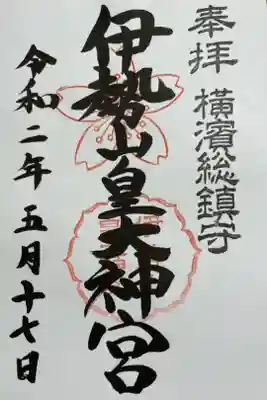 奉拝 横濱総鎮守
伊勢山皇大神宮
令和二年 五月十七日